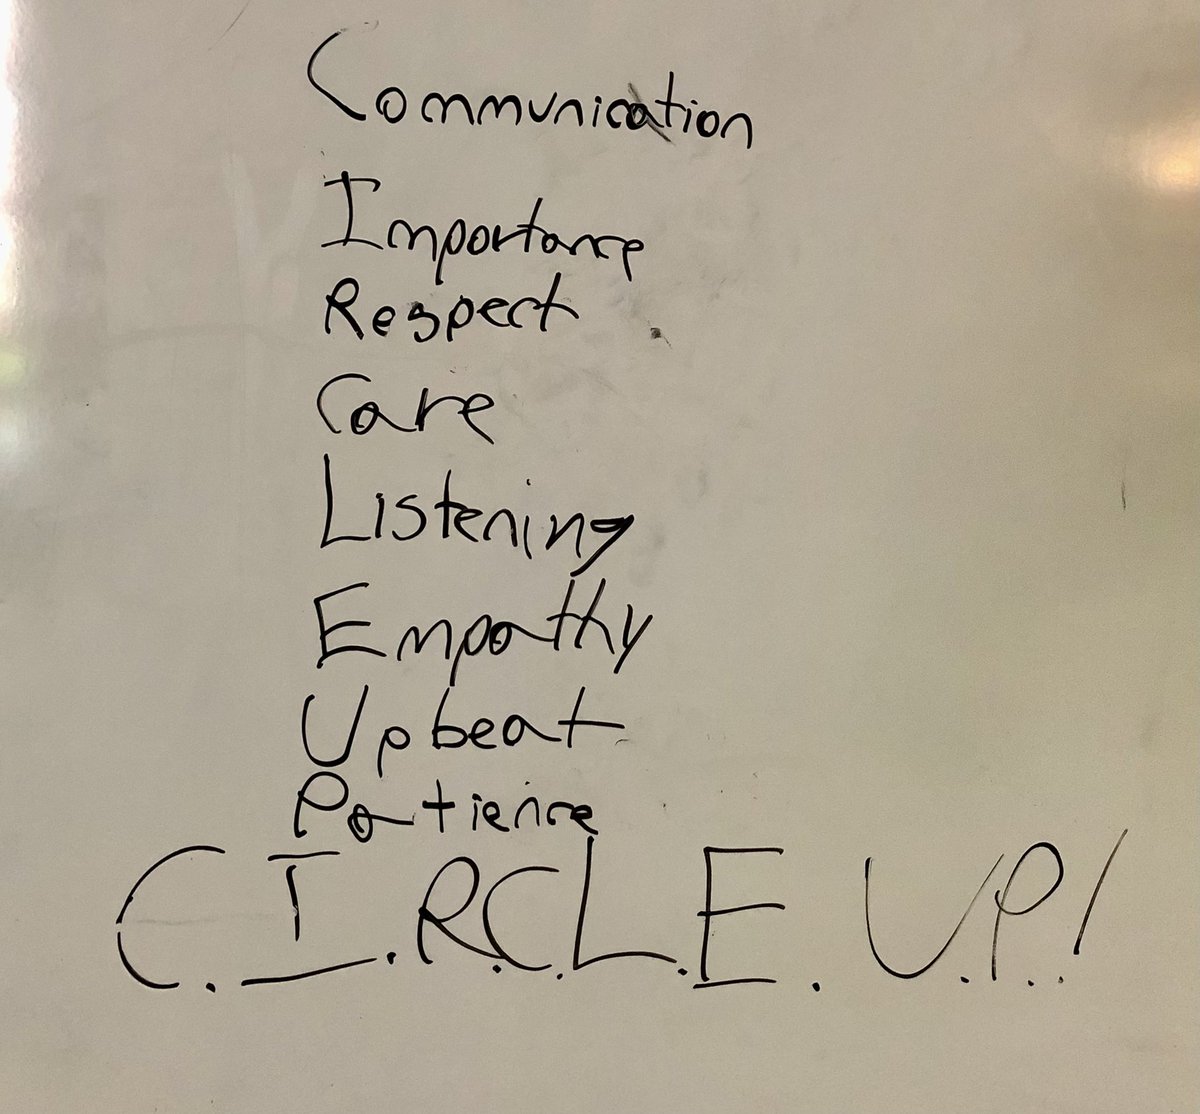 Communication
Importance
Respect
Care
Listening
Empathy
Upbeat
Patience
C.I.R.C.L.E. U.P.!